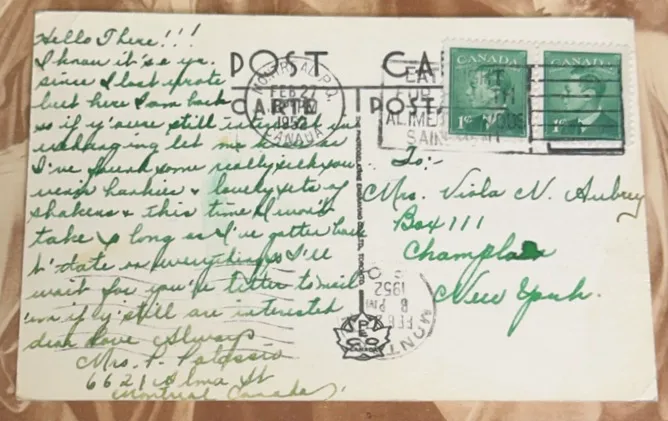 Hello There!!!
I know it's a yr.
since I last wrote
but here I am back
so if y'ouse still interested in
exchanging let me
I've found some really
hankies & lovely sets of
shakers & this time I won't
take so long as I've gotten back
t' date on everything so I'll
wait for you're letter to mail
'em if y' still are interested
dear love Always
Mrs. P.
6621 Alma St
Montreal Canada
POST CA
CARTE POST
MONTREAL P.Q.
FEB 27
1952
CANADA
EAT
FOR
ALIME
SAIN
CANADA
1c
CANADA
To:-
Mrs. Viola N. Aubrey
Box 111
Champlain
New York.
THE PHOTOGELATINE ENGRAVING CO. LTD. TORONTO
MONT
FEB 2
8 PM
1952
PECO
CANADA